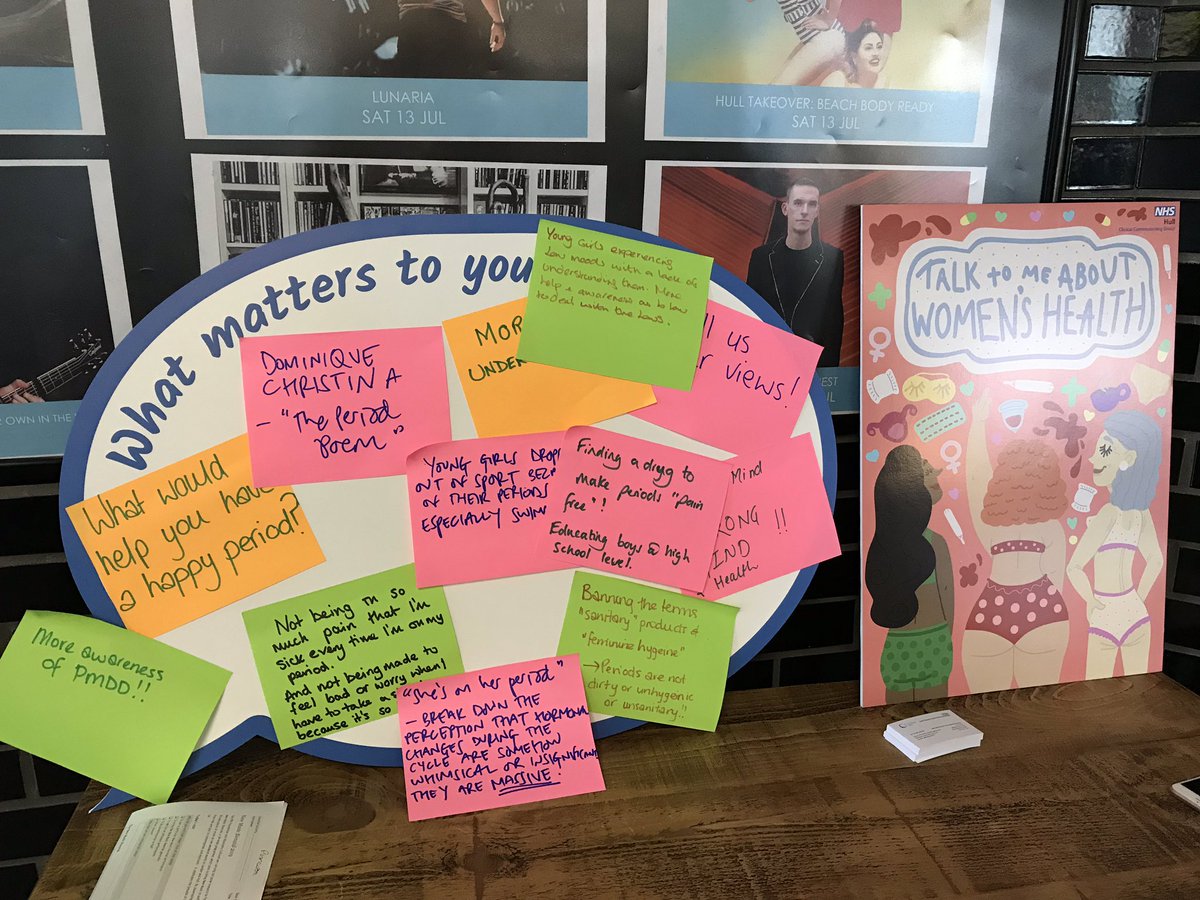 LUNARIA
SAT 13 JUL
HULL TAKEOVER: BEACH BODY READY
SAT 13 JUL
OWN IN THE
What matters to you
Young Girls experiencing
low moods with a lack of
understanding them. More
help & awareness as to how
to deal with the lows.
DOMINIQUE
CHRISTINA
- "The Period
Poem"
MOR
UNDE
us
views!
What would
help you have
a happy period?
YOUNG GIRLS DROP
OUT OF SPORT
OF THEIR PERIODS
ESPECIALLY
Finding a drug to
make periods "pain
free"!
Educating boys @ high
school level.
Mind
!!
Health
More awareness
of PMDD!!
Not being in so
much pain that I'm
sick every time I'm on my
period.
And not being made to
feel bad or worry when I
have to take a
because it's so
"She's on her period"
- BREAK DOWN THE
PERCEPTION THAT HORMONAL
CHANGES DURING THE
CYCLE ARE SOMEHOW
WHIMSICAL OR INSIGNIFICANT
THEY ARE MASSIVE!
Banning the terms
"sanitary" products &
"feminine hygeine"
→ Periods are not
dirty or unhygenic
or unsanitary!!
NHS
Hull
Clinical Commissioning Group
TALK to ME ABOUT
WOMEN'S HEALTH